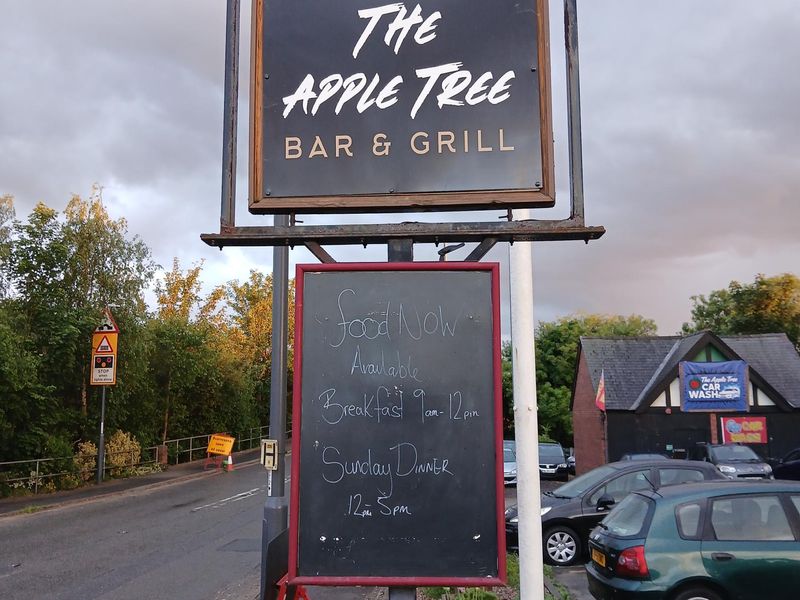 THE
APPLE TREE
BAR & GRILL
food NOW
Available
Breakfast 9am-12pm
Sunday DINNER
12pm 5pm
STOP
when
lights show
H
The Apple Tree
CAR
WASH
CAR